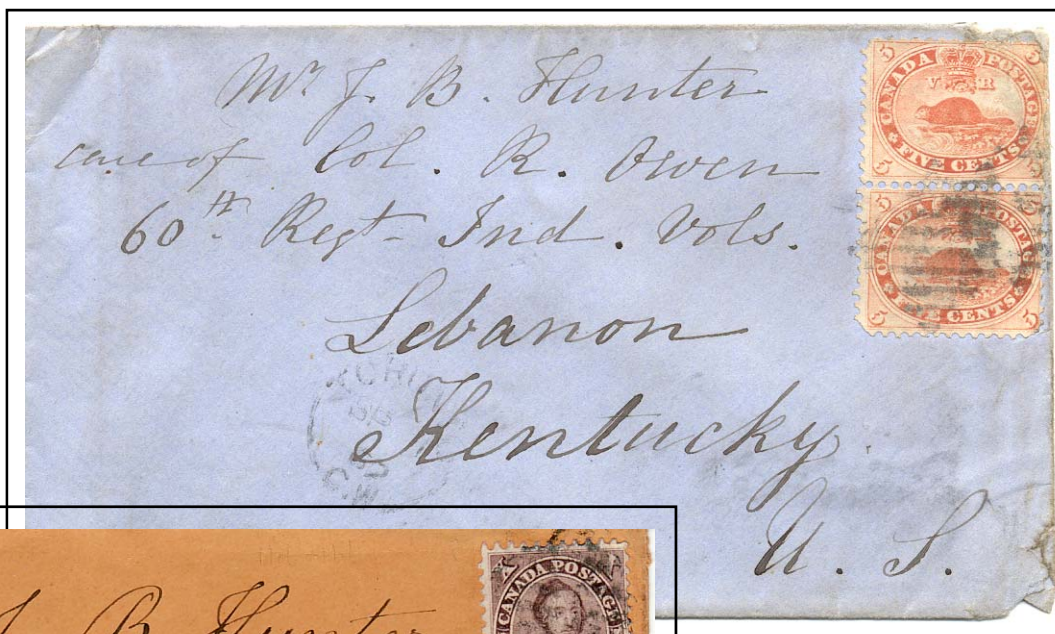 Mr J. B. Hunter
care of Col. R. Owen
60th Regt - Ind. Vols.
Lebanon
Kentucky.
U. S.
5 CANADA POSTAGE 5
V R
5 FIVE CENTS 5
5 CANADA POSTAGE 5
5 FIVE CENTS 5
C.W
J. B. Hunter
CANADA POSTAGE